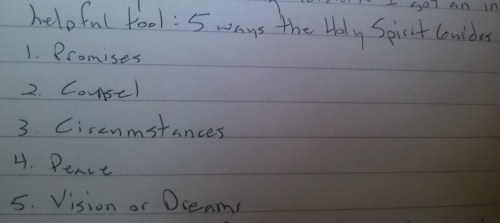 I got an in
helpful tool: 5 ways the Holy Spirit Guides
1. Promises
2. Counsel
3. Circumstances
4. Peace
5. Vision or Dreams